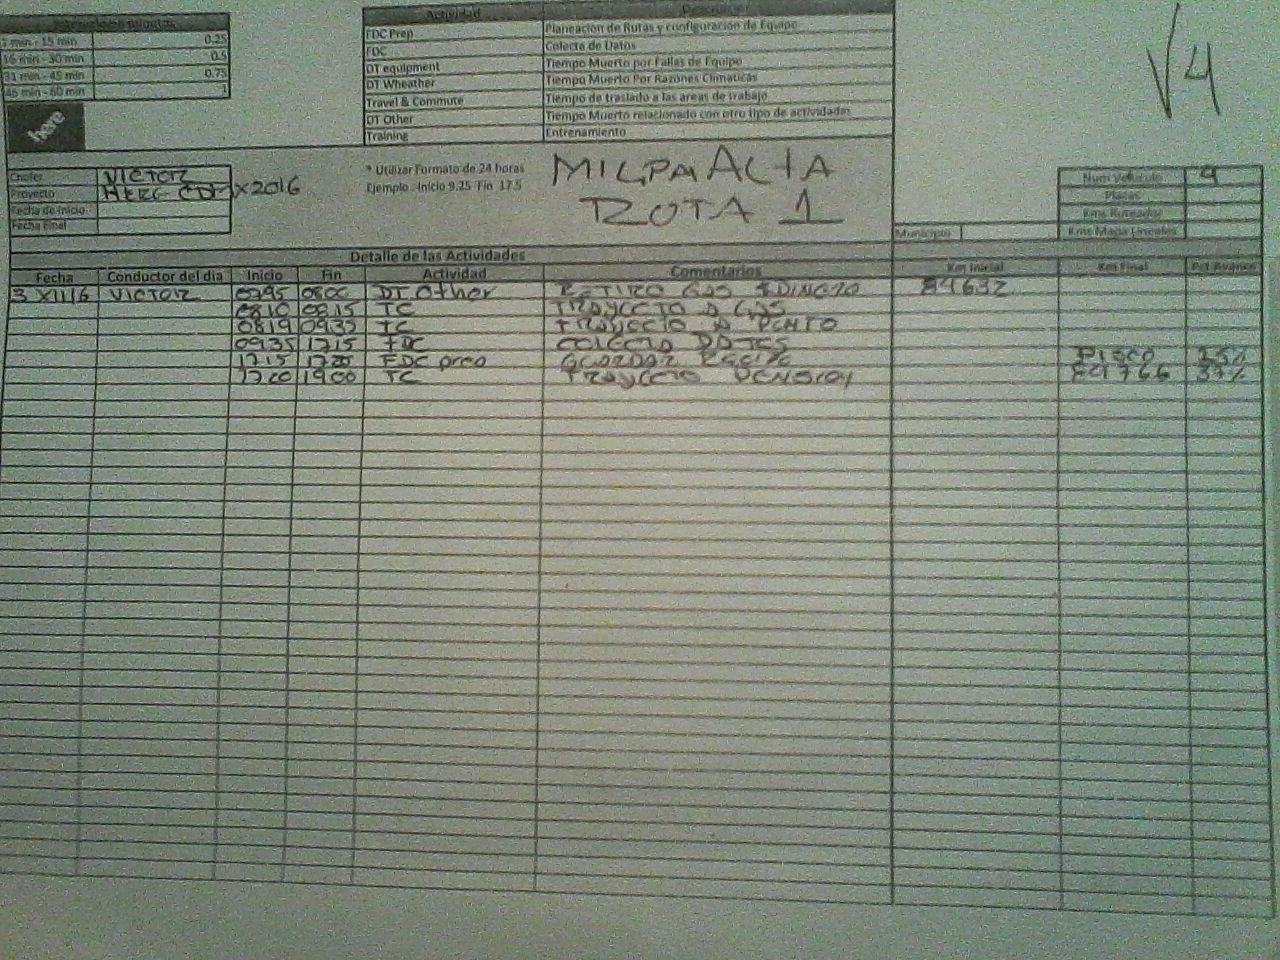 1 min - 15 min 0.25
16 min - 30 min 0.5
31 min - 45 min 0.75
46 min - 60 min 1
here
Actividad
FDC Prep Planeacion de Rutas y configuracion de Equipo
FDC Colecta de Datos
DT equipment Tiempo Muerto por Fallas de Equipo
DT Wheather Tiempo Muerto Por Razones Climaticas
Travel & Commute Tiempo de traslado a las areas de trabajo
DT Other Tiempo Muerto relacionado con otro tipo de actividades
Training Entrenamiento
V4
* Utilizar Formato de 24 horas
Ejemplo : Inicio 9.25 Fin 17.5
MILPA ALTA
RUTA 1
Chofer VICTOR
Proyecto HERE CDMX 2016
Fecha de Inicio
Fecha Final
Num Vehiculo 4
Placas
Kms Ruteados
Municipio Kms Mapa Lineales
Detalle de las Actividades
Fecha Conductor del dia Inicio Fin Actividad Comentarios Km Inicial Km Final Pct Avance
3 XII 16 VICTOR 0800 DT Other RETIRO GAS
0810 0815 TC TRAYECTO A GAS
0819 0935 TC TRAYECTO A PUNTO
0935 1715 FDC COLECTA DATOS
1715 1720 FDC prep GUARDAR DISCO
1720 1900 TC TRAYECTO PENSION 37%